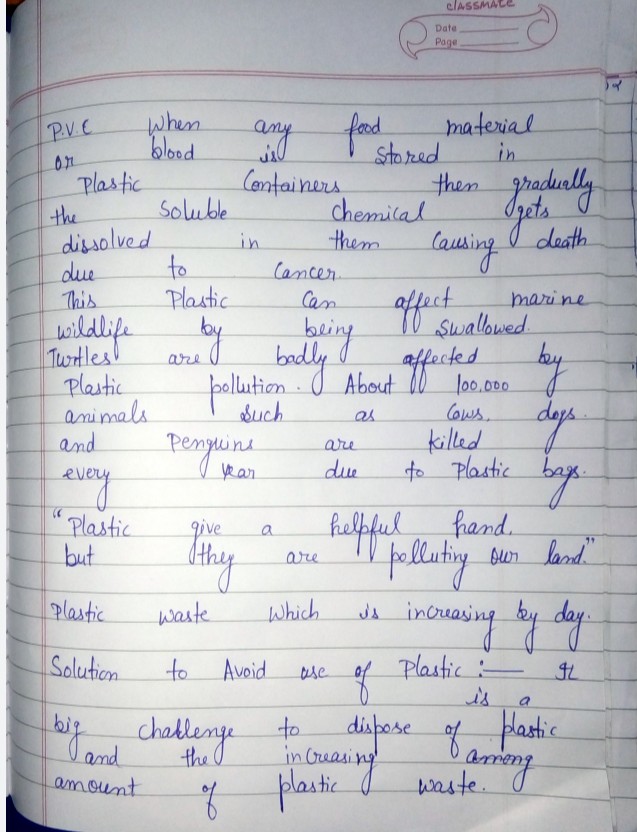 CLASSMATE
Date
Page
P.V.C When any food material
or blood is stored in
Plastic Containers then gradually
the Soluble Chemical gets
dissolved in them Causing death
due to Cancer.
This Plastic Can affect marine
wildlife by being Swallowed.
Turtles are badly affected by
Plastic pollution. About 100,000
animals Such as Cows, dogs.
and Penguins are killed
every year due to Plastic bags.
"Plastic give a helpful hand.
but they are polluting our land."
Plastic waste Which is increasing by day.
Solution to Avoid use of Plastic :— It
is a
big challenge to dispose of plastic
and the increasing among
amount of plastic waste.